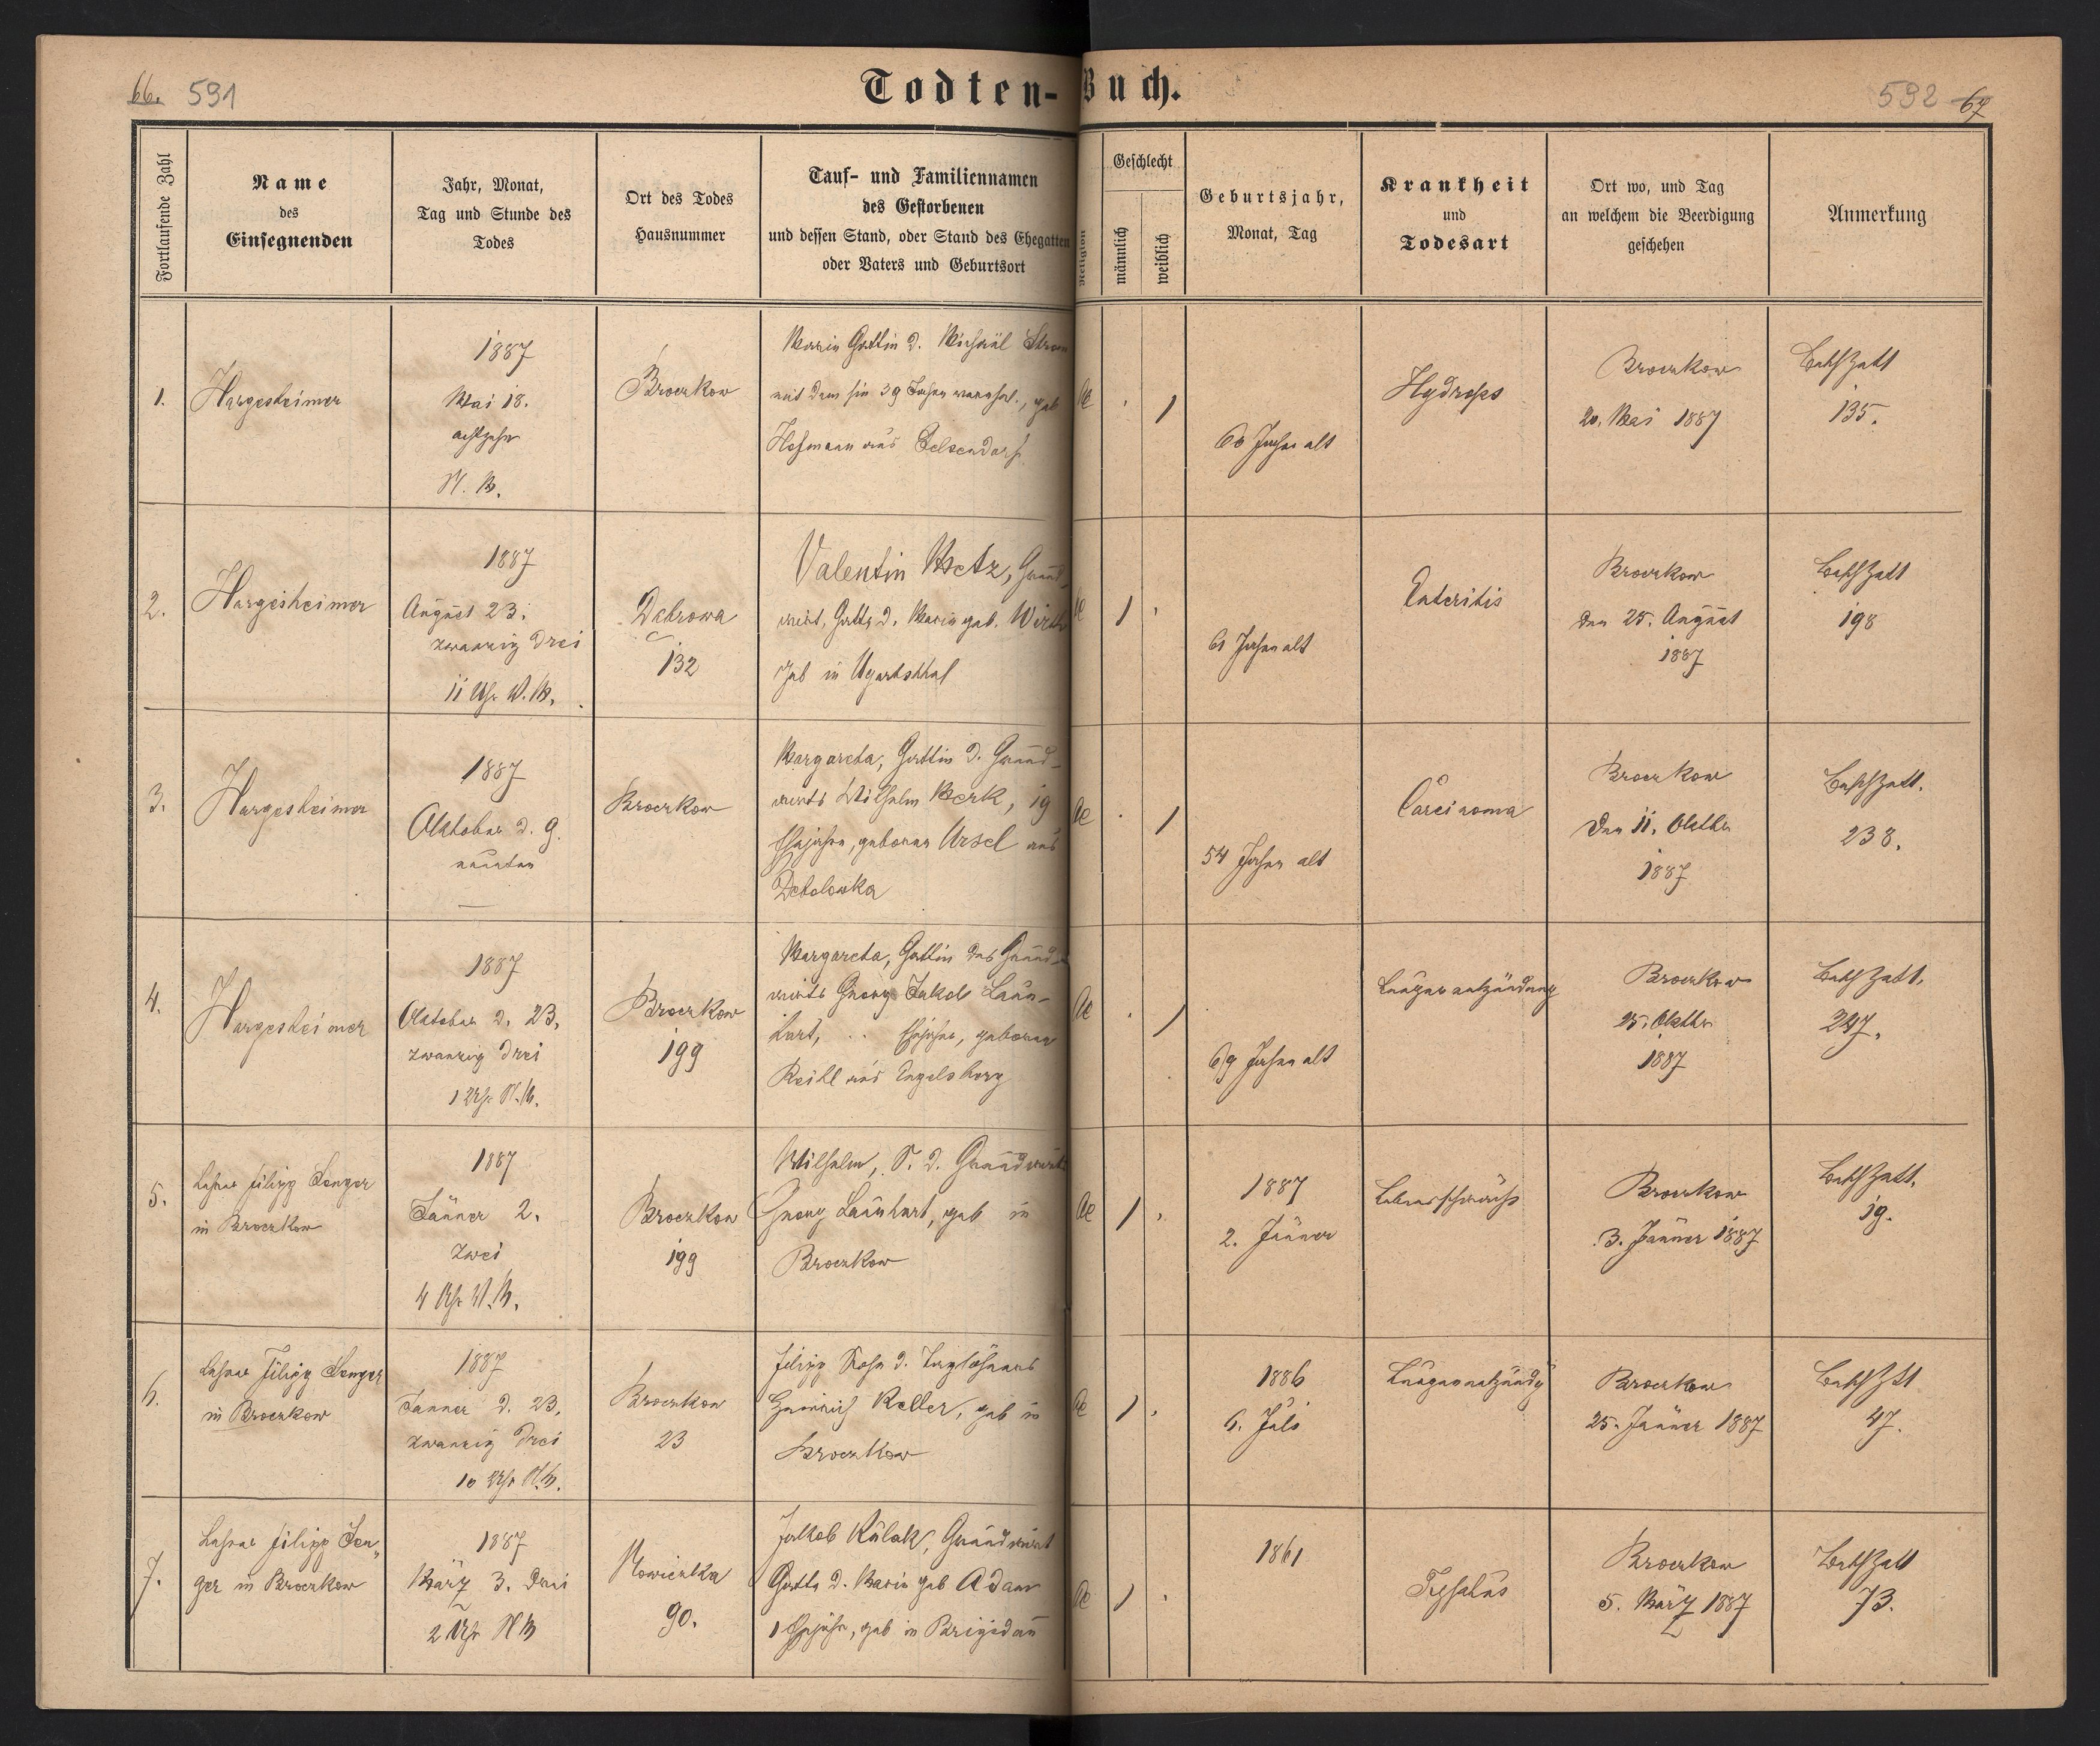 66. 591
Todten-Buch.
592 67
Fortlaufende Zahl
Name
des
Einsegnenden
Jahr, Monat,
Tag und Stunde des
Todes
Ort des Todes
Hausnummer
Tauf- und Familiennamen
des Gestorbenen
und dessen Stand, oder Stand des Ehegatten
oder Vaters und Geburtsort
Religion
Geschlecht
männlich
weiblich
Geburtsjahr,
Monat, Tag
Krankheit
und
Todesart
Ort wo, und Tag
an welchem die Beerdigung
geschehen
Anmerkung
1.
Hargesheimer
1887
Mai 18.
achtzehn
N. M.
Broczkow
Maria Gattin d. Michael
mit dem sie 39 Jahre, geb
Hofmann aus Gelsendorf
1
60 Jahre alt
Hydrops
Broczkow
20. Mai 1887
135.
2.
Hargesheimer
1887
August 23.
zwanzig drei
11 Uhr V. M.
Debrowa
132
Valentin Metz, Grund-
wirt, Gatte d. Maria geb. Wirth
geb in Ugartsthal
1
61 Jahre alt
Enteritis
Broczkow
den 25. August
1887
198
3.
Hargesheimer
1887
Oktober d. 9.
neunten
Broczkow
Margareta, Gattin d. Grund-
wirts Wilhelm Merk, 19
Ehejahre, geborene Ursel aus
Debolowka
1
54 Jahre alt
Carcinoma
Broczkow
den 11. Oktbr
1887
238.
4.
Hargesheimer
1887
Oktober d. 23.
zwanzig drei
1 Uhr N. M.
Broczkow
199
Margareta, Gattin des Grund-
wirts Georg Jakob Laun-
hart, .. Ehejahre, geborene
aus Engelsberg
1
69 Jahre alt
Lungenentzündung
Broczkow
25. Oktbr
1887
247.
5.
Lehrer Filipp Senger
in Broczkow
1887
Jänner 2.
zwei
4 Uhr V. M.
Broczkow
199
Wilhelm, S. d. Grundwirts
Georg Launhart, geb in
Broczkow
1
1887
2. Jänner
Lebensschwäche
Broczkow
3. Jänner 1887
19.
6.
Lehrer Filipp Senger
in Broczkow
1887
Jänner d. 23.
zwanzig drei
10 Uhr N. M.
Broczkow
23
Filipp Sohn d. Taglöhners
Heinrich Keller, geb in
Broczkow
1
1886
6. Juli
Lungenentzündg
Broczkow
25. Jänner 1887
47.
7.
Lehrer Filipp Sen-
ger in Broczkow
1887
März 3. drei
2 Uhr N M
Nowiczka
90.
Jakob Kulak, Grundwirt
Gatte d. Maria geb Adam
1 Ehejahr, geb in Brigidau
1
1861
Broczkow
5. März 1887
73.